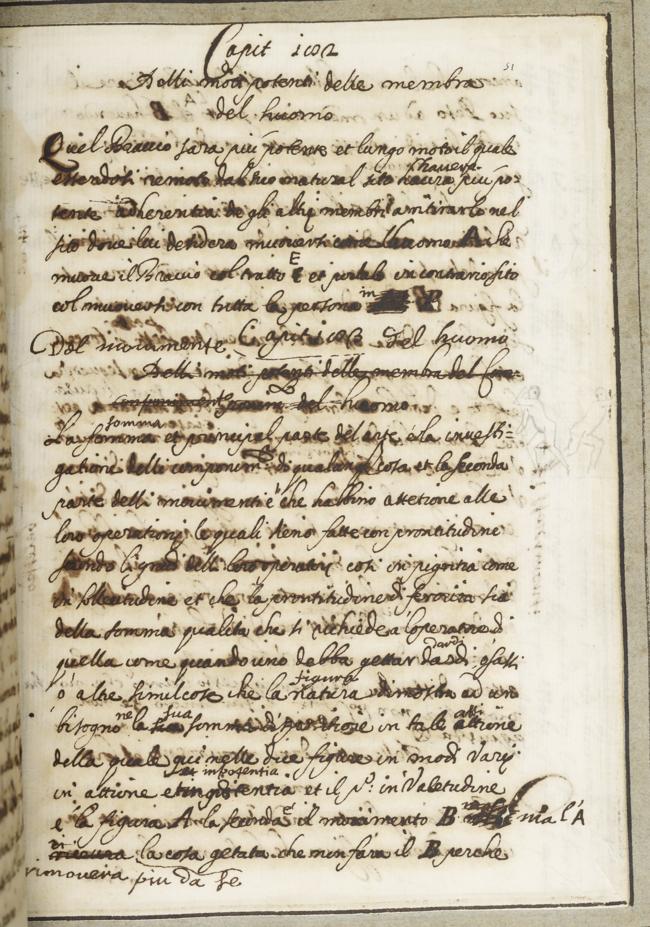 Capit 102
51
Delli moti potenti delle membra
del huomo
Quel Braccio sara piu potente et lungo moto il quale
essendosi remosso dal suo natural sito havera piu po-
tente adherentia de gli altri membri a ritirarlo nel
sito dove lui desidera muoversi come l'huomo A che
muove il Braccio col tratto E et portalo in contrario sito
col muoversi con tutta la persona in B
Del movimento Capit 103 del huomo
Delli moti potenti delle membra del
componimento del huomo
La somma et principal parte del arte é la investi=
gatione delli componimenti di qualunque cosa et la seconda
parte delli movimenti é che habbino attetione alle
loro operationi le quali sieno fatte con prontitudine
secondo li gradi delli loro operatori cosi in pigritia come
in sollecitudine et che la prontitudine di ferocita sia
della somma qualita che si richiede a l'operatore di
quella come quando uno debba gettar dardi o sassi
o altre simil cose che la figura dimostra
ne la sua somma dispositione in tale attione
della quale qui nelle due figure in modi varij
in attione et in potentia et il p.º in Valetudine
e la figura A la seconda é il movimento B ma l'A
rimovera piu da se
la cosa getata che non fara il B perche